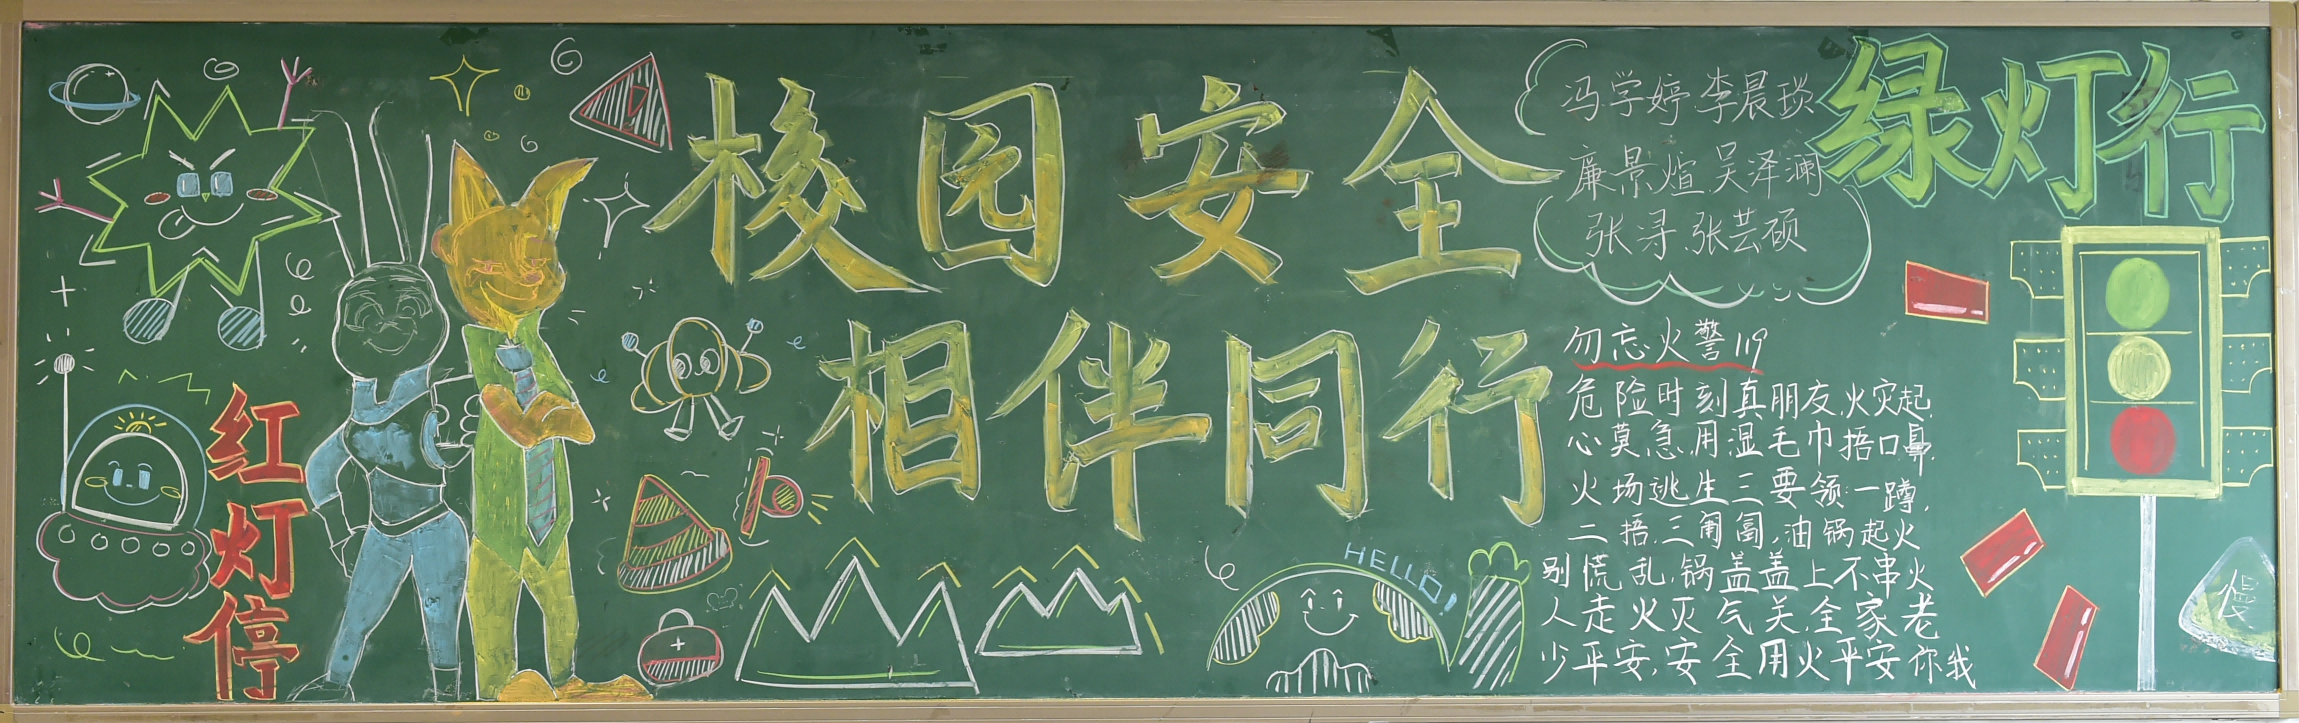 校园安全
相伴同行
红灯停
绿灯行
冯学婷 李晨琰
廉景煊 吴泽澜
张寻 张芸硕
勿忘火警119
危险时刻真朋友,火灾起,
心莫急,用湿毛巾捂口鼻.
火场逃生三要领:一蹲,
二捂,三匍匐,油锅起火
别慌乱,锅盖盖上不串火
人走火灭气关,全家老
少平安,安全用火平安你我
HELLO!
慢